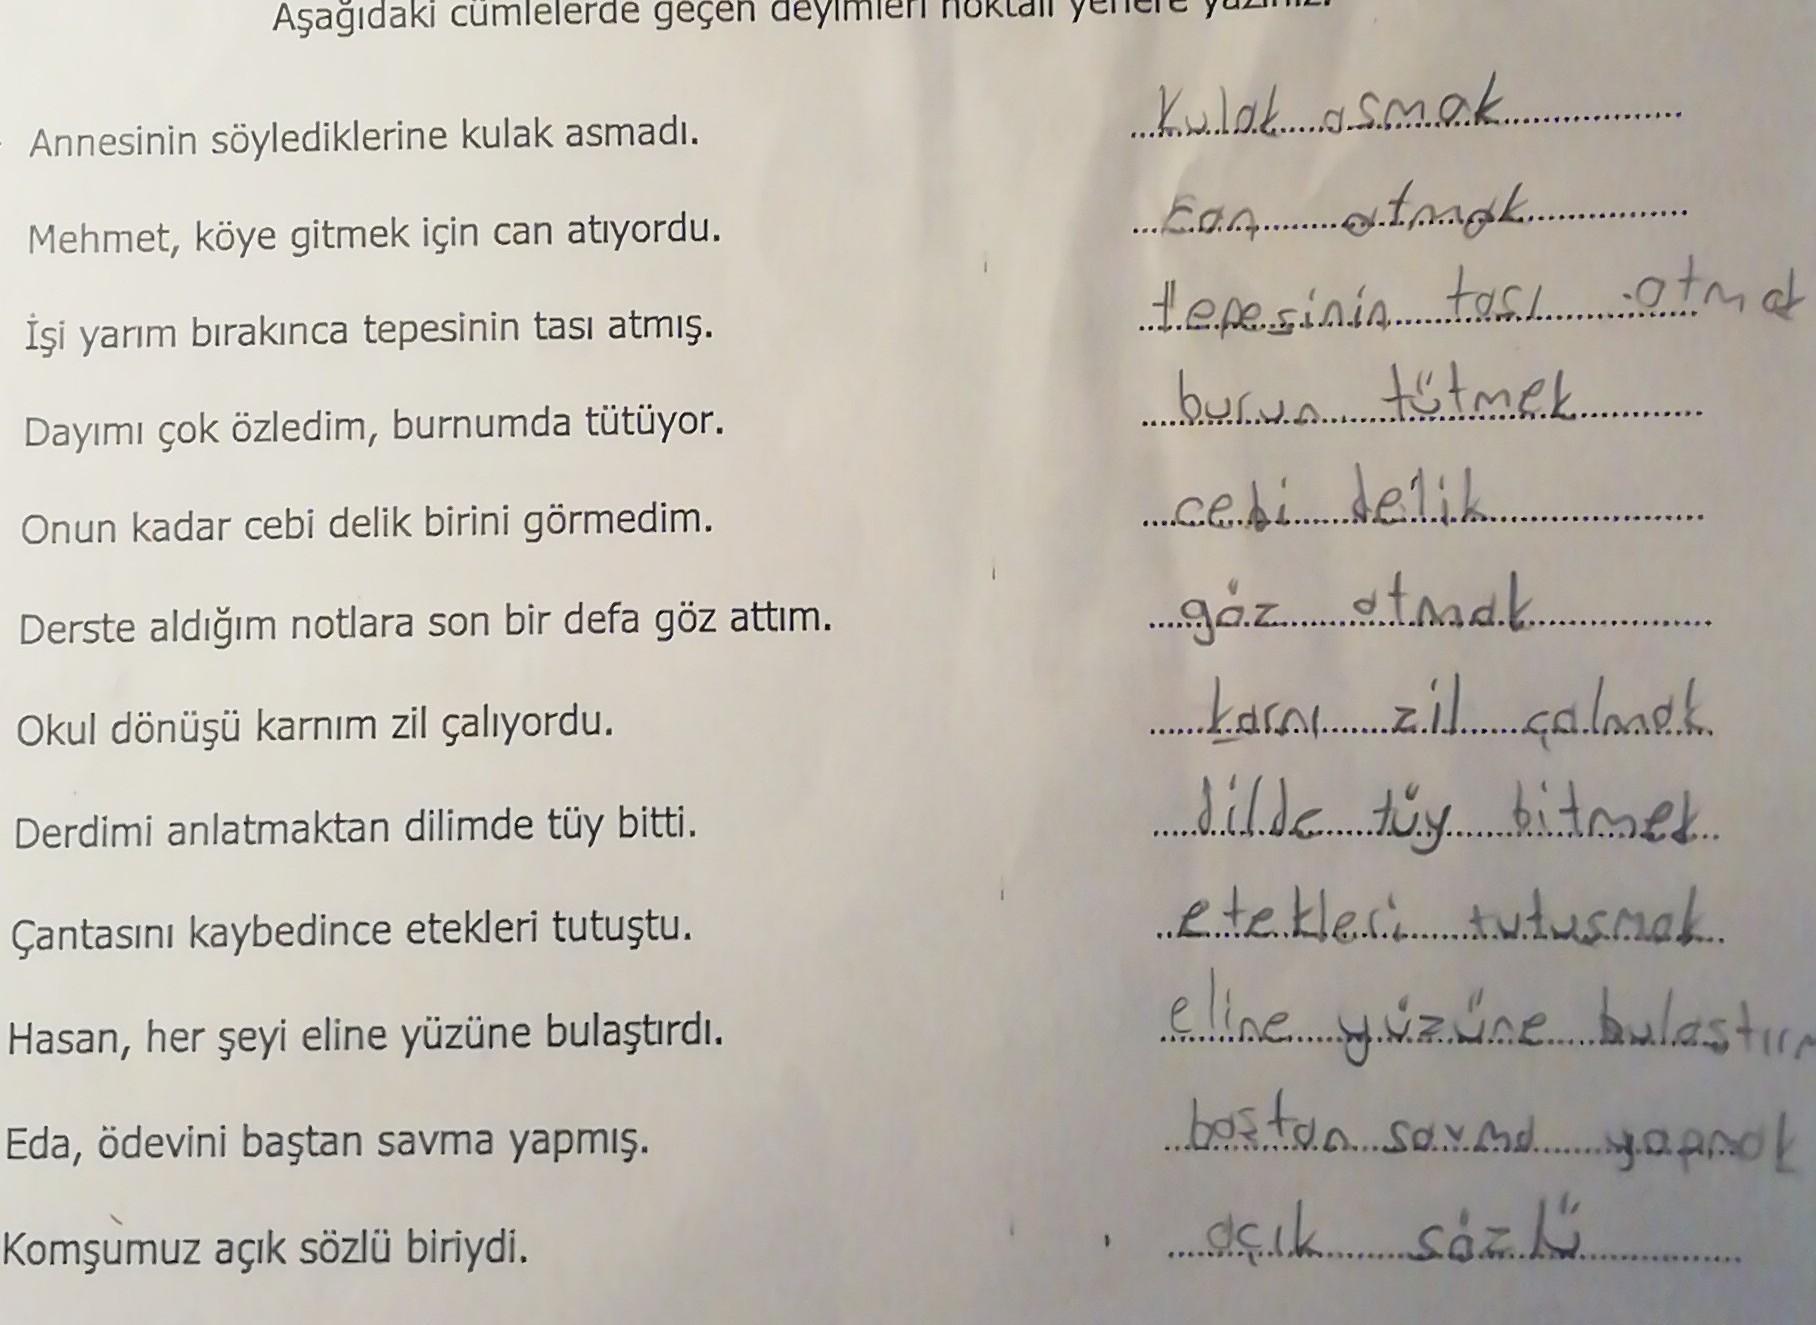 Aşağıdaki cümlelerde geçen deyimleri noktalı yerlere yazınız.
Annesinin söylediklerine kulak asmadı. Kulak asmak
Mehmet, köye gitmek için can atıyordu. can atmak
İşi yarım bırakınca tepesinin tası atmış. tepesinin tası atmak
Dayımı çok özledim, burnumda tütüyor. burun tütmek
Onun kadar cebi delik birini görmedim. cebi delik
Derste aldığım notlara son bir defa göz attım. göz atmak
Okul dönüşü karnım zil çalıyordu. karnı zil çalmak
Derdimi anlatmaktan dilimde tüy bitti. dilde tüy bitmek
Çantasını kaybedince etekleri tutuştu. etekleri tutusmak
Hasan, her şeyi eline yüzüne bulaştırdı. eline yüzüne bulastırm
Eda, ödevini baştan savma yapmış. baştan savma yapmak
Komşumuz açık sözlü biriydi. açık sözlü